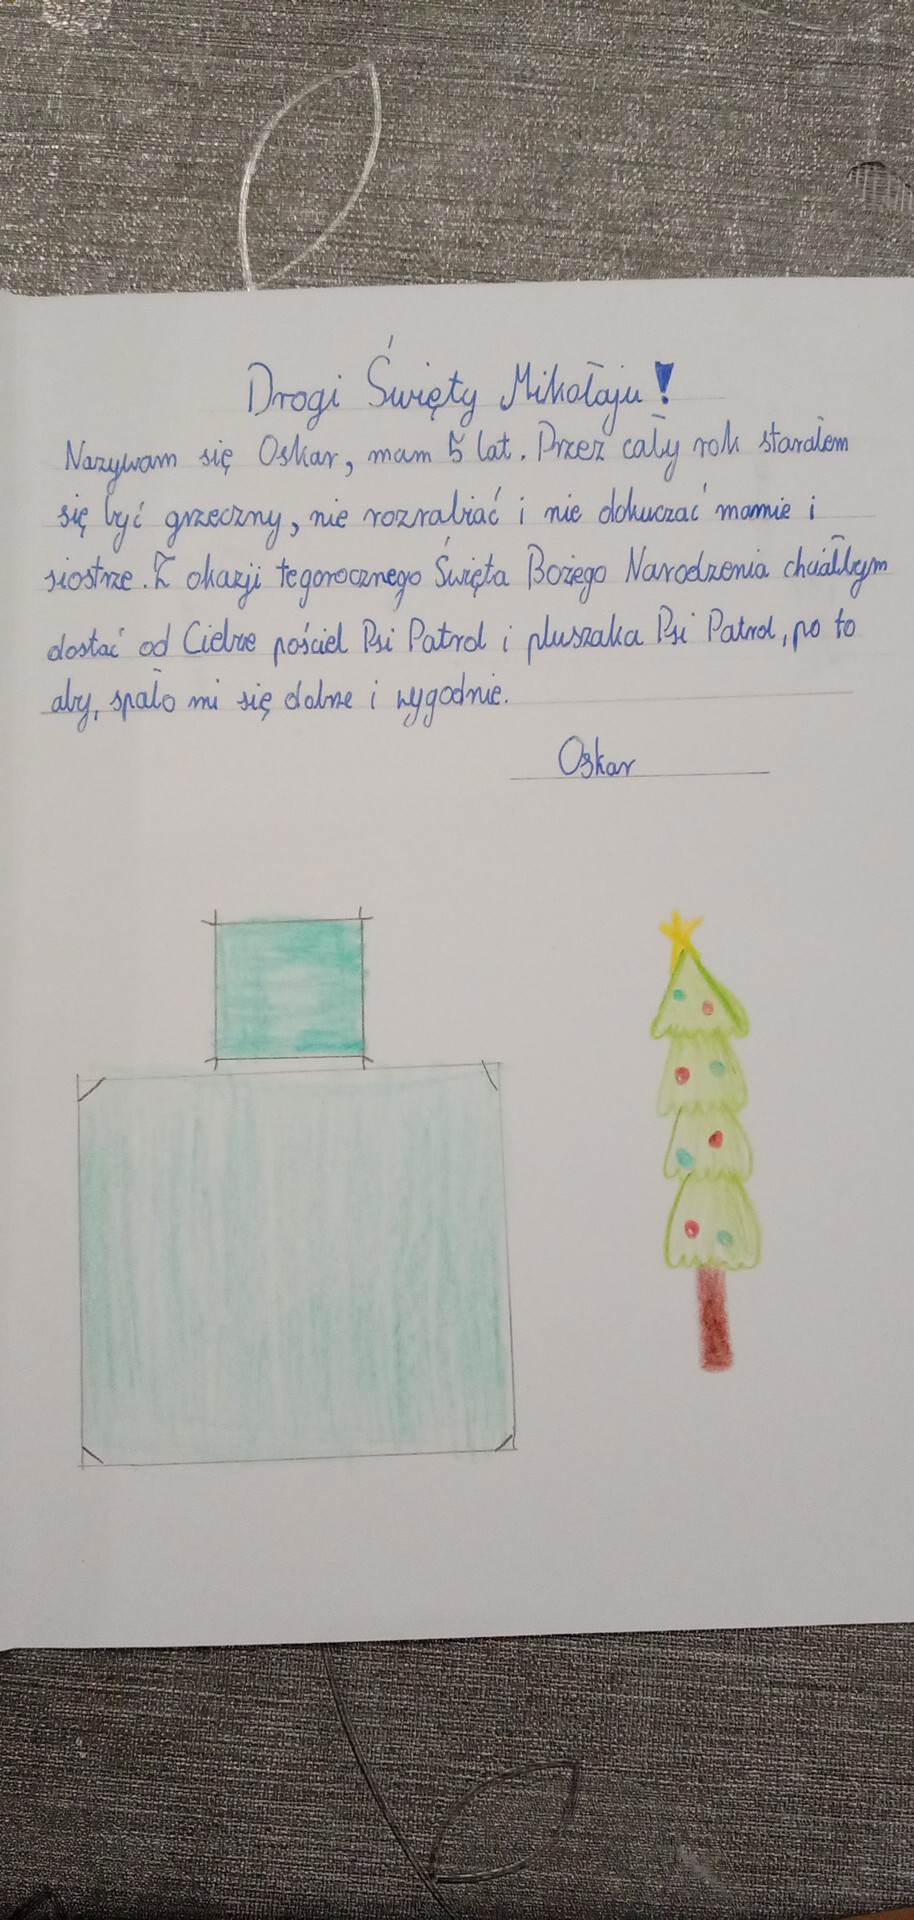 Drogi Święty Mikołaju!
Nazywam się Oskar, mam 5 lat. Przez cały rok starałem
się być grzeczny, nie rozrabiać i nie dokuczać mamie i
siostrze. Z okazji tegorocznego Święta Bożego Narodzenia chciałbym
dostać od Ciebie pościel Psi Patrol i pluszaka Psi Patrol, po to
aby, spało mi się dobrze i wygodnie.
Oskar